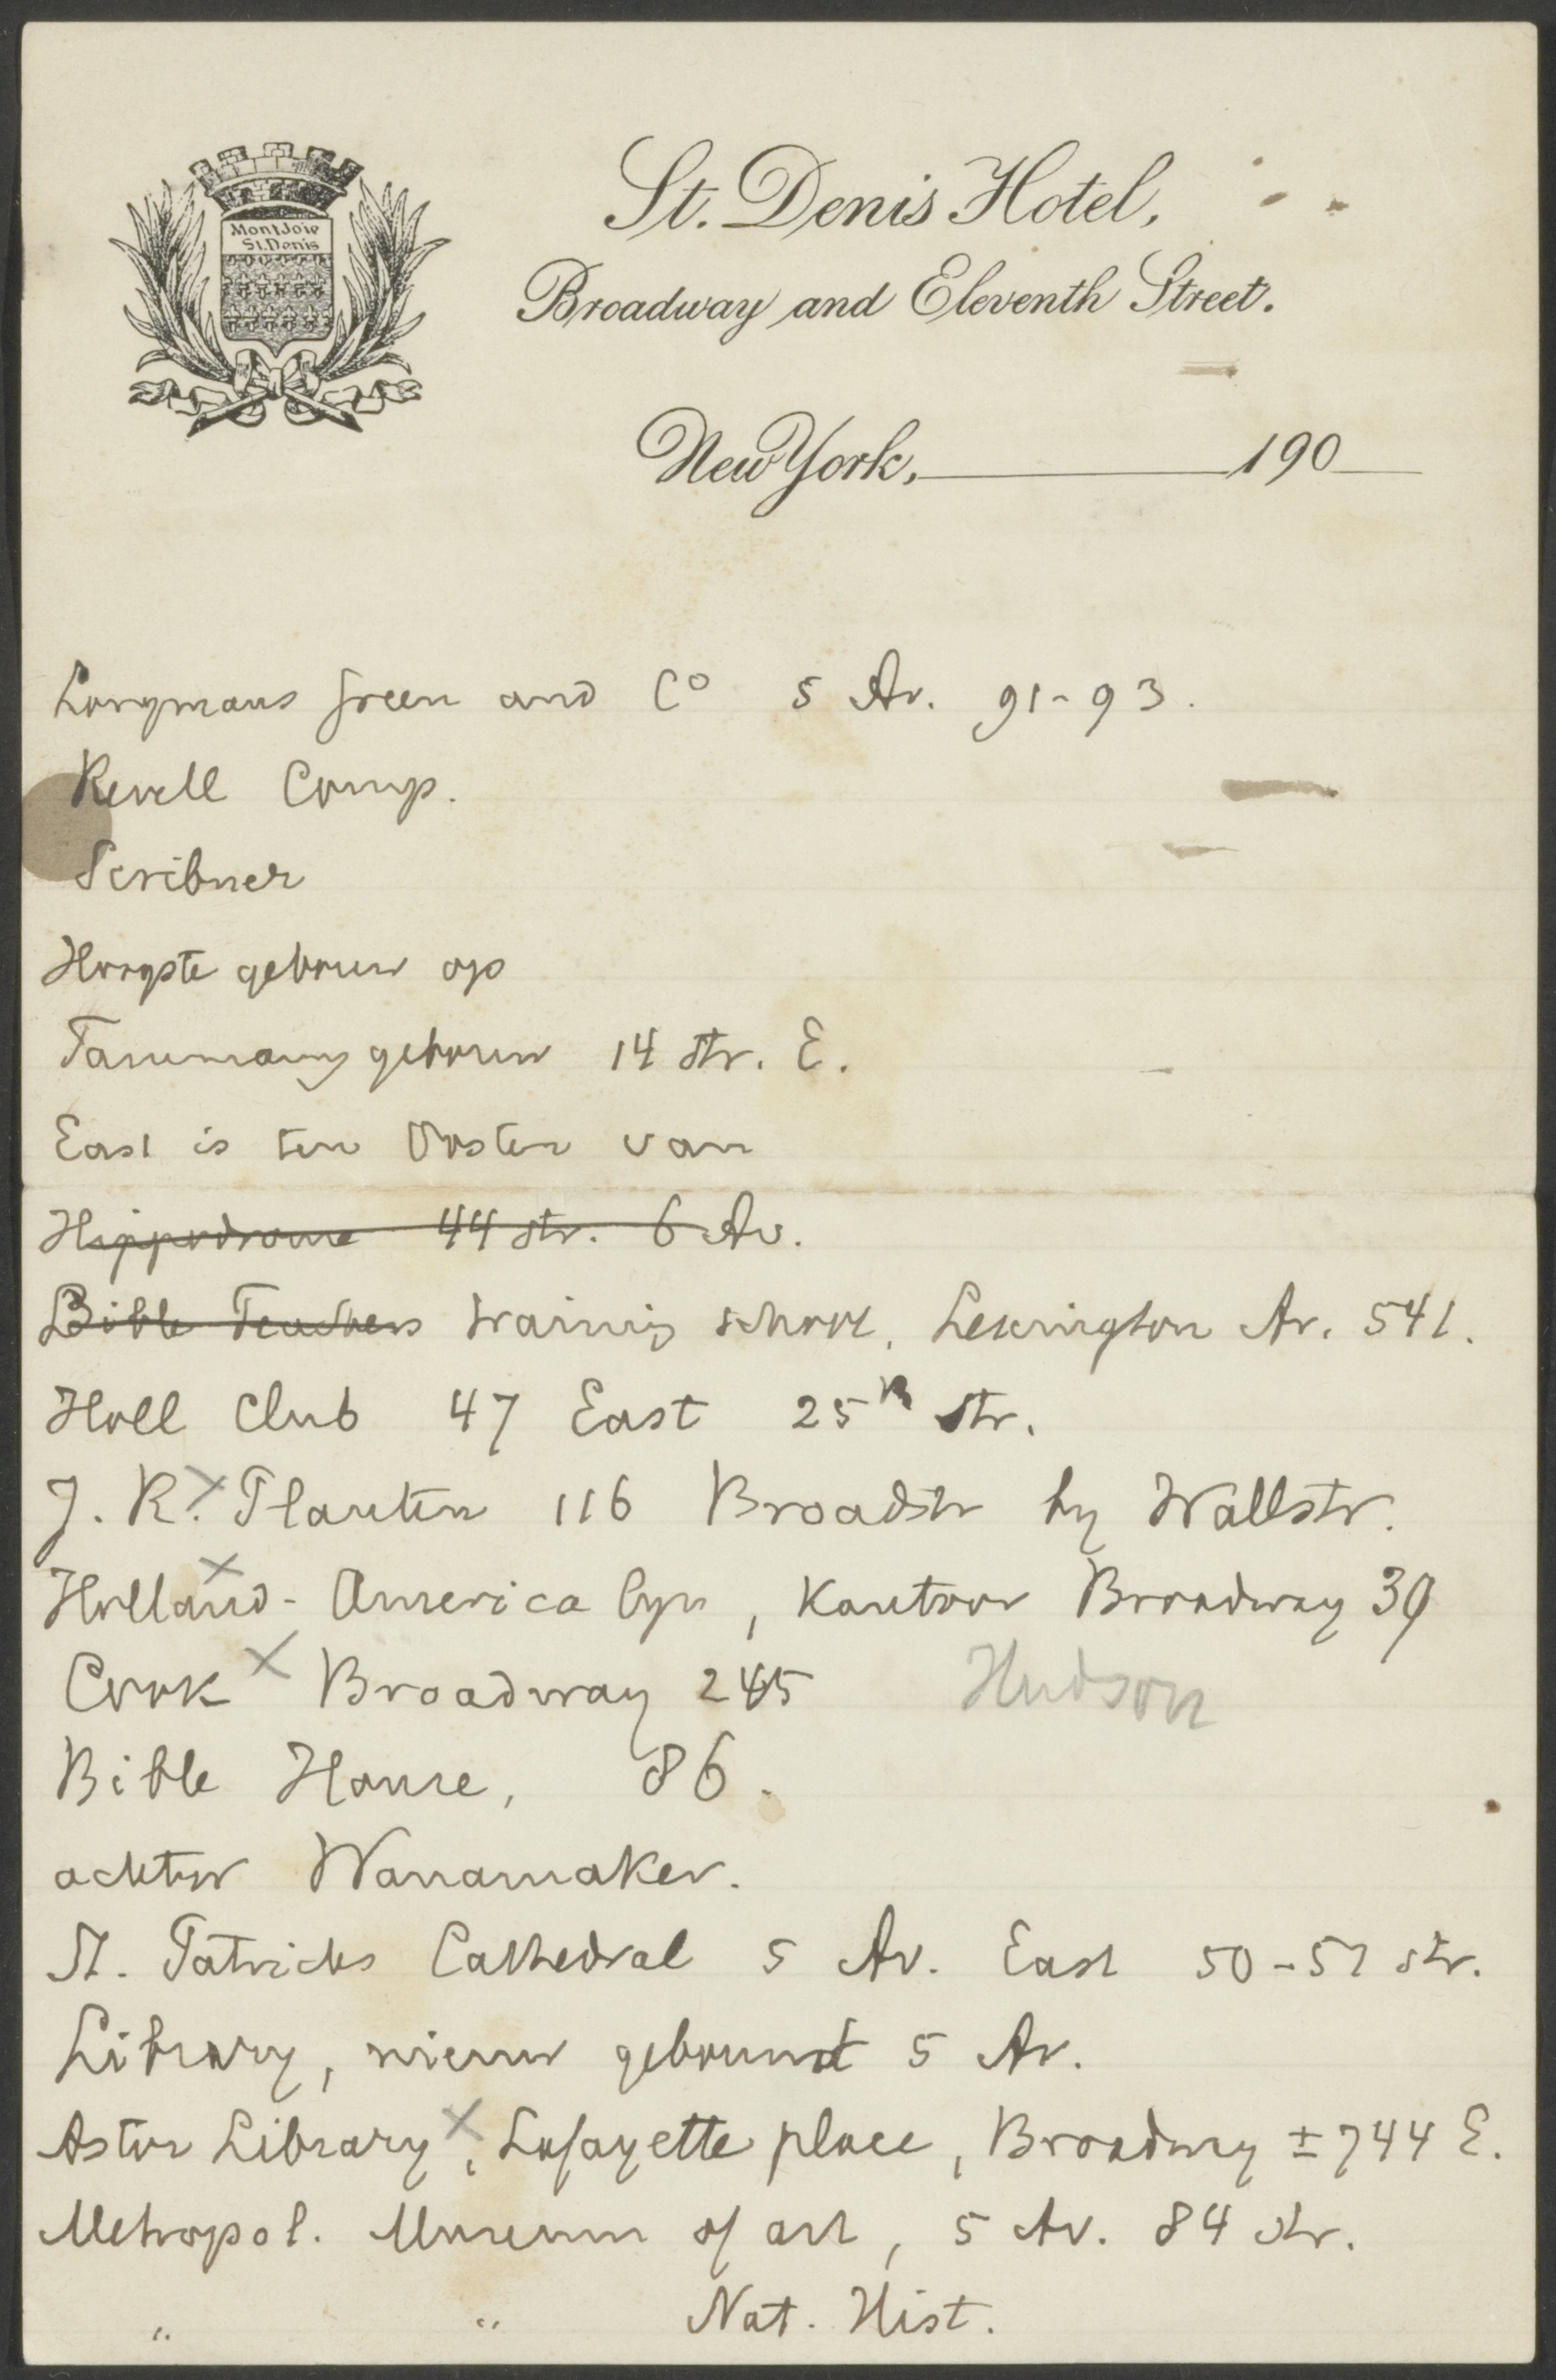 MontJoie
St. Denis
St. Denis Hotel,
Broadway and Eleventh Street.
New York, 190
Longmans Green and Co 5 Av. 91-93.
Revell Comp.
Scribner
Hoogste gebouw op
Tammany gebouw 14 Str. E.
East is ten Oosten van
Hippodrome 44 str. 6 Av.
Bible Teachers training school. Lexington Av. 541.
Holl Club 47 East 25th Str.
J. R. Planten 116 Broadstr by Wallstr.
Holland-America lyn, Kantoor Broadway 39
Cook Broadway 245
Hudson
Bible House, 86.
achter Wanamaker.
St. Patricks Cathedral 5 Av. East 50-51 str.
Library, nieuw gebouwd 5 Av.
Astor Library, Lafayette place, Broadway ±744 E.
Metropol. Museum of art, 5 Av. 84 str.
" " Nat. Hist.